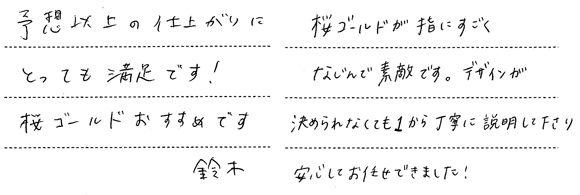 予想以上の仕上がりに
とっても満足です!
桜ゴールドおすすめです
鈴木
桜ゴールドが指にすごく
なじんで素敵です。デザインが
決められなくても1から丁寧に説明して下さり
安心してお任せできました!